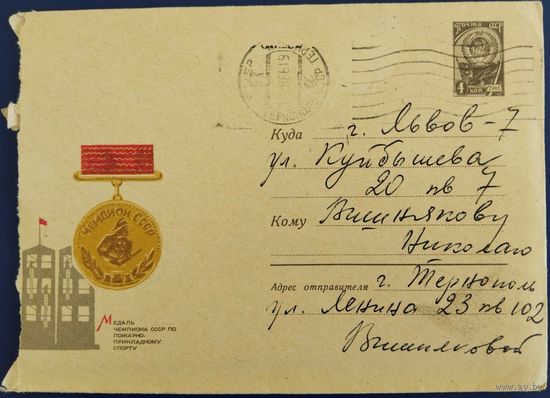 ПОЧТА СССР
4
КОП
Куда г. Львов-7
ул. Куйбышева
20 кв 7
Кому Вишнякову
Николаю
Адрес отправителя г. Тернополь
ул. Ленина 23 кв 102
Вишняковой
ЧЕМПИОН СССР
МЕДАЛЬ
ЧЕМПИОНА СССР ПО
ПОЖАРНО-
ПРИКЛАДНОМУ
СПОРТУ
www.ay.by